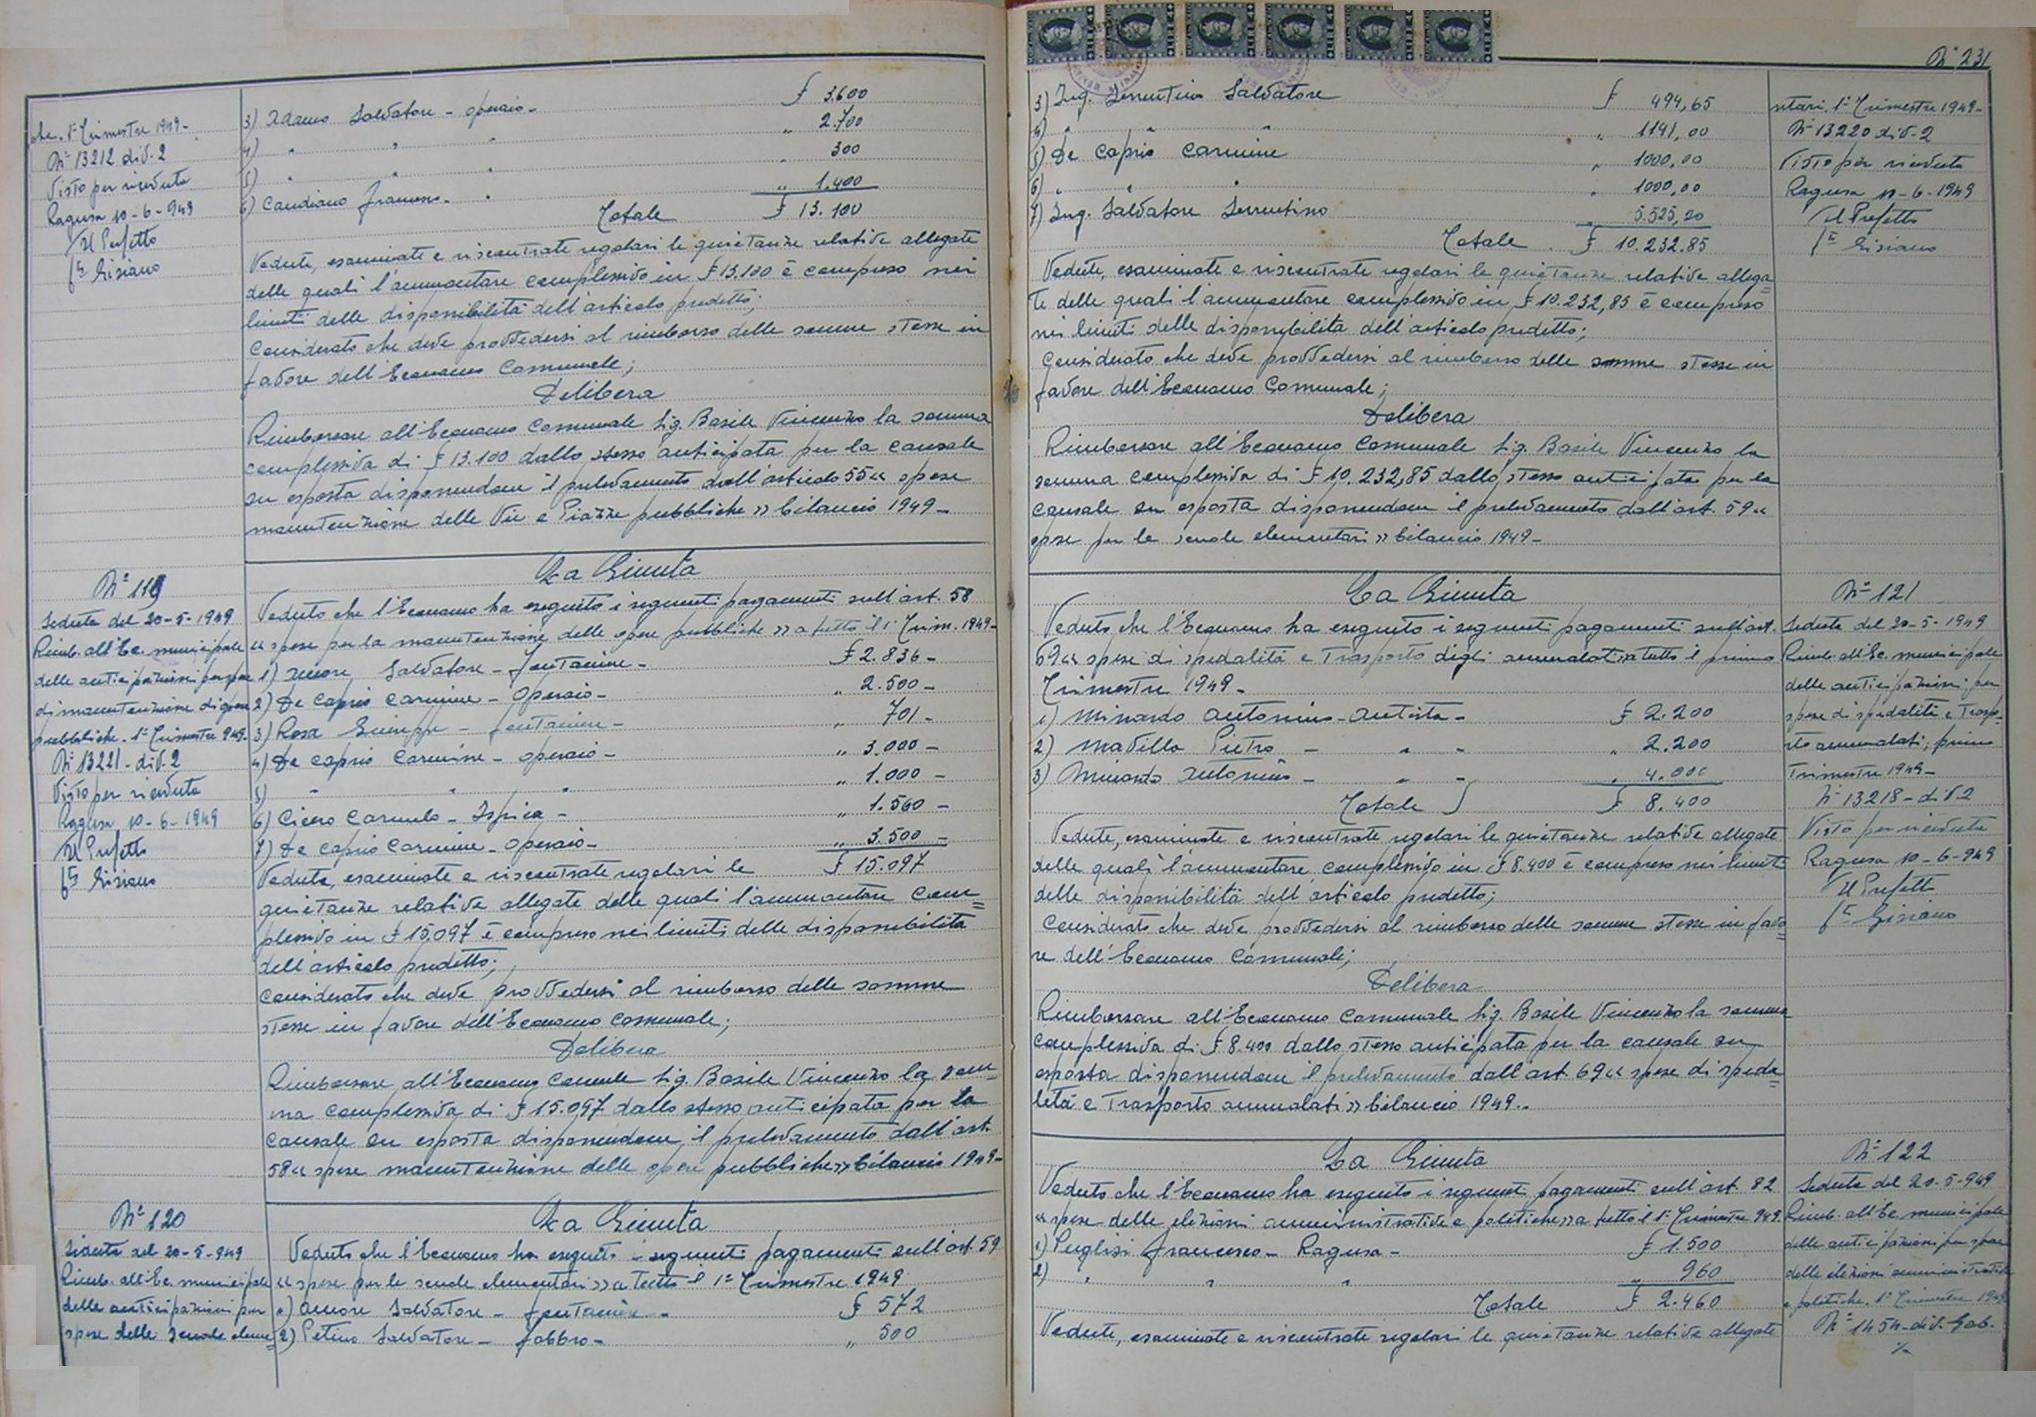 che. 1° Trimestre 1949-
N° 13212 div. 2
Visto per ricevuta
Ragusa 10-6-949
Il Prefetto
Giriano
3) Adamo Salvatore - operaio - £ 3.600
4) " " " " 2.700
5) " " " " 300
6) Candiano Francesco - " " 1.400
Totale £ 13.100
Vedute, esaminate e riscontrate regolari le quietanze relative allegate
delle quali l'ammontare complessivo in £ 13.100 è compreso nei
limiti delle disponibilità dell'articolo predetto;
Considerato che deve provvedersi al rimborso delle somme stesse in
favore dell'Economo Comunale;
Delibera
Rimborsare all'Economo Comunale Sig. Basile Vincenzo la somma
complessiva di £ 13.100 dallo stesso anticipata per la causale
su esposta disponendone il prelevamento dall'articolo 55 « spese
manutenzione delle Vie e Piazze pubbliche » bilancio 1949-
N° 119
Seduta del 20-5-1949
Rimb. all'Ec. municipale
delle anticipazioni per spese
di manutenzione di opere
pubbliche. 1° Trimestre 949.
N° 13221 - div. 2
Visto per ricevuta
Ragusa 10-6-1949
Il Prefetto
Giriano
La Giunta
Veduto che l'Economo ha eseguito i seguenti pagamenti sull'art. 58
« spese per la manutenzione delle opere pubbliche » a tutto il 1° Trim. 1949-
1) Amore Salvatore - fontaniere - £ 2.836-
2) De Caprio Carmine - Operaio - " 2.500-
3) Rosa Giuseppe - fontaniere - " 701-
4) De Caprio Carmine - operaio - " 3.000-
5) " " " " 1.000-
6) Cicero Carmelo - Ispica - " 1.560-
7) De Caprio Carmine - Operaio - " 3.500-
£ 15.097
Vedute, esaminate e riscontrate regolari le
quietanze relative allegate delle quali l'ammontare com=
plessivo in £ 15.097 è compreso nei limiti delle disponibilità
dell'articolo predetto;
Considerato che deve provvedersi al rimborso delle somme
stesse in favore dell'Economo Comunale;
Delibera
Rimborsare all'Economo Comunale Sig. Basile Vincenzo la som=
ma complessiva di £ 15.097 dallo stesso anticipata per la
causale su esposta disponendone il prelevamento dall'art.
58 « spese manutenzione delle opere pubbliche » bilancio 1949-
N° 120
Seduta del 20-5-949
Rimb. all'Ec. municipale
delle anticipazioni per
spese delle scuole eleme=
La Giunta
Veduto che l'Economo ha eseguito i seguenti pagamenti sull'art. 59
« spese per le scuole elementari » a tutto il 1° Trimestre 1949
1) Amore Salvatore - fontaniere - £ 572
2) Petino Salvatore - fabbro - " 500
N° 231
3) Ing. Sorrentino Salvatore £ 494,65
4) " " " " 1141,00
5) De Caprio Carmine " 1000,00
6) " " " " 1000,00
7) Ing. Salvatore Sorrentino " 5.525,20
Totale £ 10.232.85
Vedute, esaminate e riscontrate regolari le quietanze relative allega=
te delle quali l'ammontare complessivo in £ 10.232,85 è compreso
nei limiti delle disponibilità dell'articolo predetto;
Considerato che deve provvedersi al rimborso delle somme stesse in
favore dell'Economo Comunale;
Delibera
Rimborsare all'Economo Comunale Sig. Basile Vincenzo la
somma complessiva di £ 10.232,85 dallo stesso anticipata per la
causale su esposta disponendone il prelevamento dall'art. 59 «
spese per le scuole elementari » bilancio 1949-
ntari. 1° Trimestre 1949-
N° 13220 div. 2
Visto per ricevuta
Ragusa 10-6-1949
Il Prefetto
Giriano
La Giunta
Veduto che l'Economo ha eseguito i seguenti pagamenti sull'art.
69 « spese di spedalità e trasporto degli ammalati » a tutto il primo
Trimestre 1949-
1) Minardo Antonino - Autista - £ 2.200
2) Mavilla Pietro - " - " 2.200
3) Minardo Antonino - " - " 4.000
Totale £ 8.400
Vedute, esaminate e riscontrate regolari le quietanze relative allegate
delle quali l'ammontare complessivo in £ 8.400 è compreso nei limiti
delle disponibilità dell'articolo predetto;
Considerato che deve provvedersi al rimborso delle somme stesse in favo=
re dell'Economo Comunale;
Delibera
Rimborsare all'Economo Comunale Sig. Basile Vincenzo la somma
complessiva di £ 8.400 dallo stesso anticipata per la causale su
esposta disponendone il prelevamento dall'art. 69 « spese di speda=
lità e trasporto ammalati » bilancio 1949-
N° 121
Seduta del 20-5-1949
Rimb. all'Ec. municipale
delle anticipazioni per
spese di spedalità e traspo=
rto ammalati, primo
Trimestre 1949-
N° 13218 - div. 2
Visto per ricevuta
Ragusa 10-6-949
Il Prefetto
Giriano
La Giunta
Veduto che l'Economo ha eseguito i seguenti pagamenti sull'art. 82
« spese delle elezioni amministrative e politiche » a tutto il 1° Trimestre 949.
1) Puglisi Francesco - Ragusa - £ 1.500
2) " " " " 960
Totale £ 2.460
Vedute, esaminate e riscontrate regolari le quietanze relative allegate
N° 122
Seduta del 20-5-949
Rimb. all'Ec. municipale
delle anticipazioni per spese
delle elezioni amministrative
e politiche. 1° Trimestre 1949
N° 1454 - div. Gab.